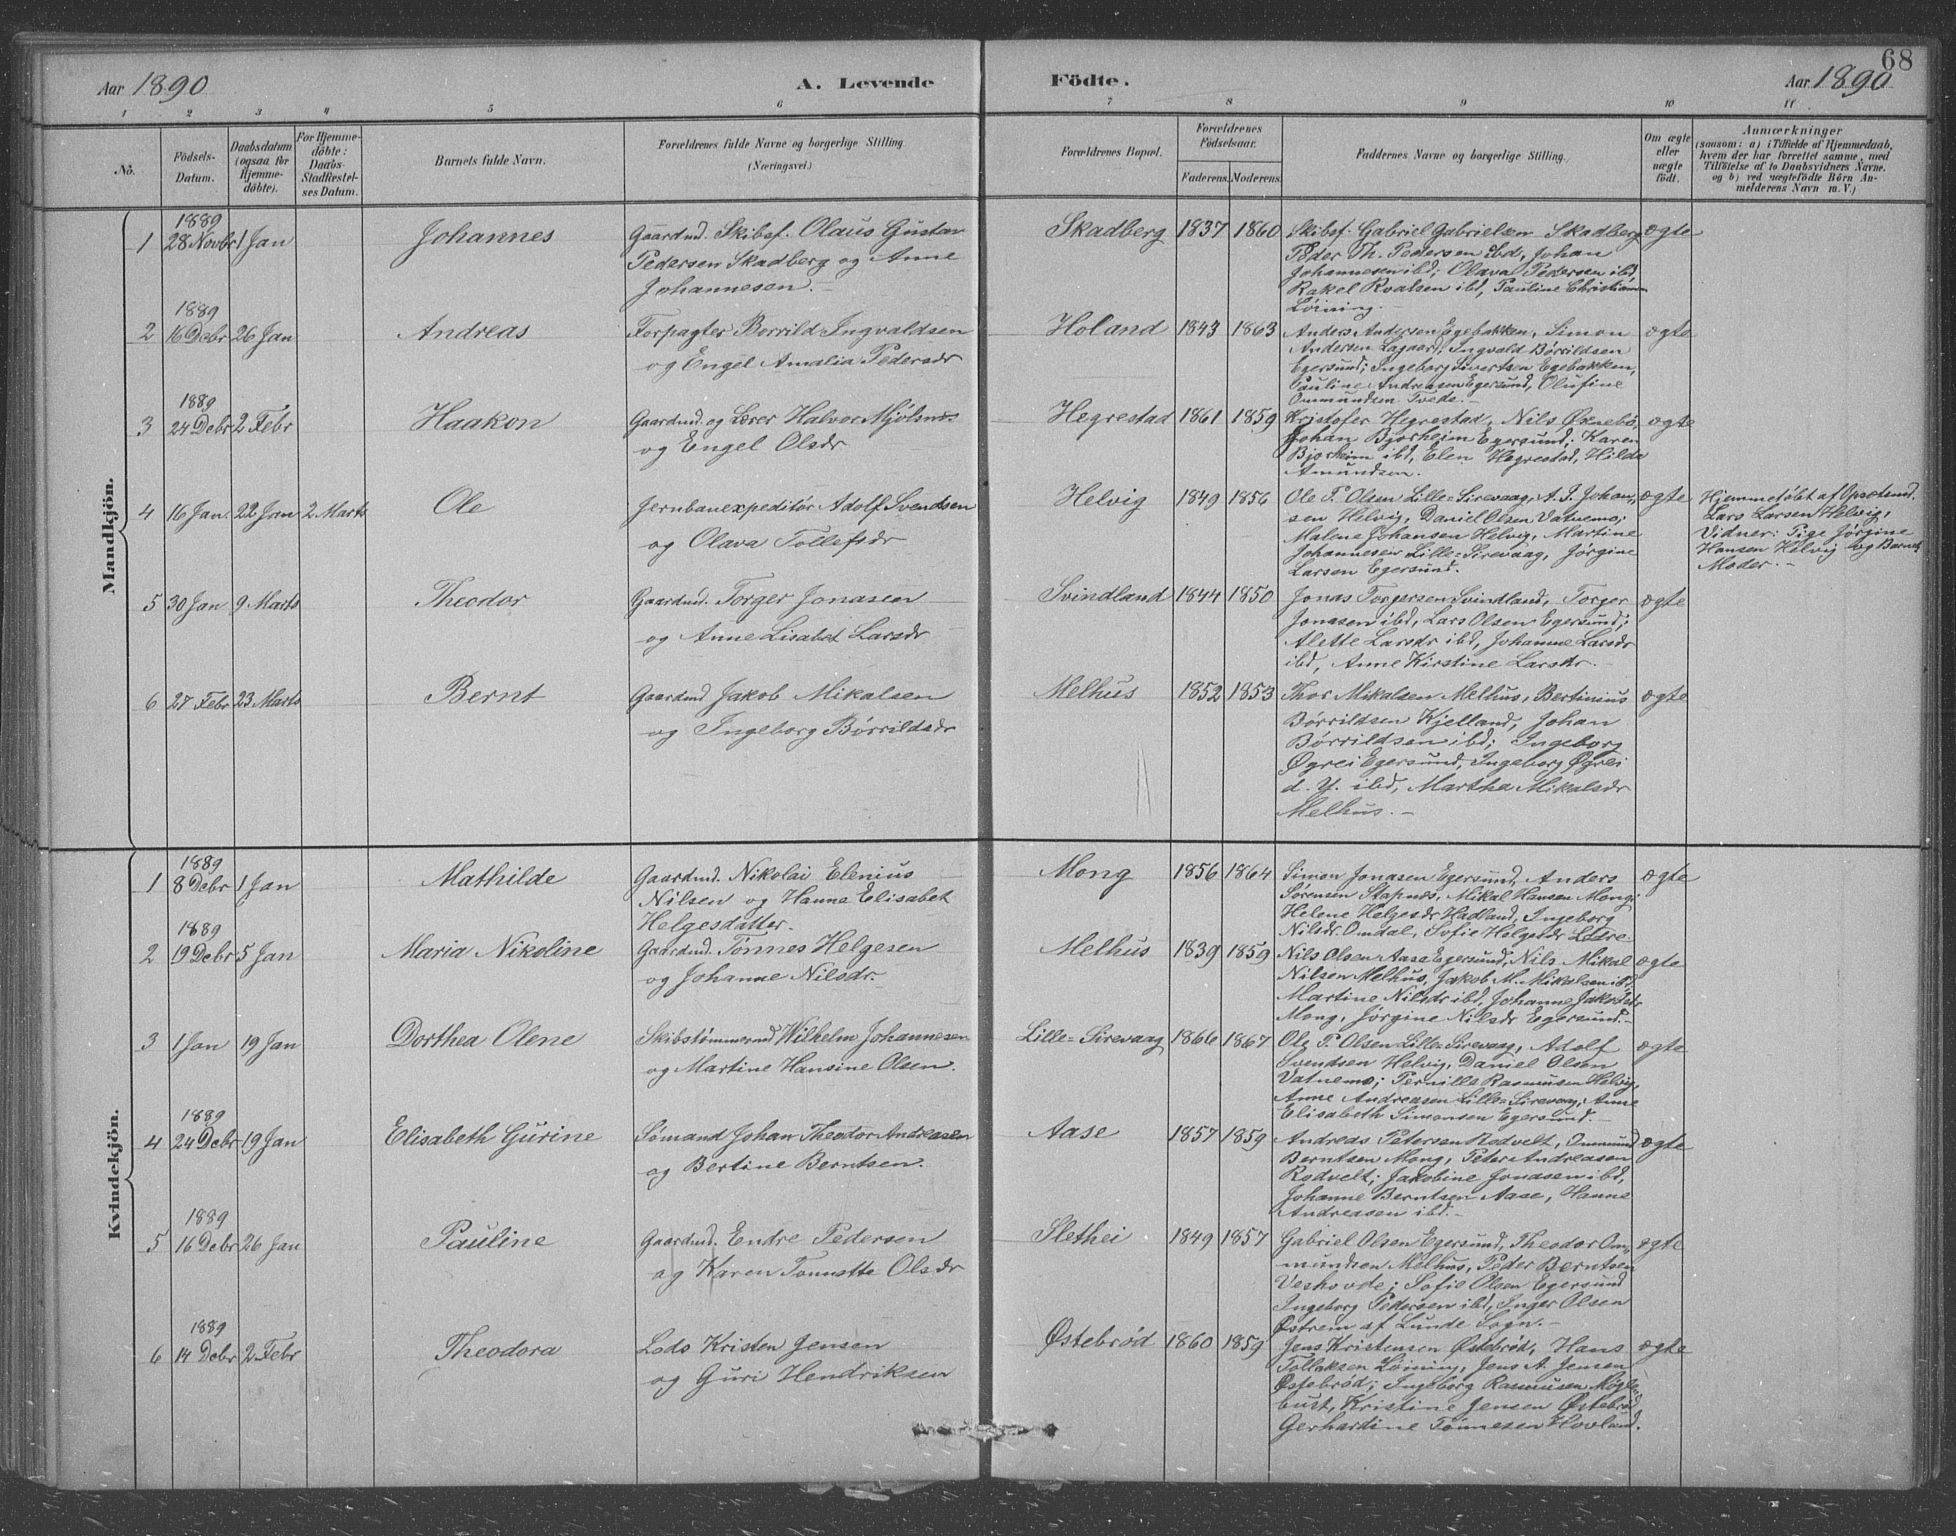 68
Aar 1890 A. Levende Födte. Aar 1890
1 2 3 4 5 6 7 8 9 10 11
No. Födsels-Datum. Daabsdatum (ogsaa for Hjemmedöbte). For Hjemmedöbte: Daabs-Stadfæstelses Datum. Barnets fulde Navn. Forældrenes fulde Navne og borgerlige Stilling. (Næringsvei.) Forældrenes Bopæl. Forældrenes Födselsaar. Faderens. Moderens. Faddernes Navne og borgerlige Stilling. Om ægte eller uægte födt. Anmærkninger (saasom: a) i Tilfælde af Hjemmedaab, hvem der har forrettet samme, med Tilföielse af to Daabsvidners Navne. og b) ved uægtefödte Börn Anmelderens Navn m. V.)
Mandkjön.
1 1889 28 Novbr 1 Jan Johannes Gaardmd. Skibsf. Olaus Gustav Skadberg 1837 1860 Skibsf. Gabriel Gabrielsen Skadberg ægte
Pedersen Skadberg og Anne Peder Th. Pedersen ibd, Johan
Johannesen. Johannesen ibd; Olava Pedersen ibd,
Rakel Roalsen ibd, Pauline Christiansen
Løining.
2 1889 16 Debr 26 Jan Andreas Forpagter Børrild Ingvaldsen Holand 1843 1863 Anders Andersen Egebakken, Simon ægte
og Engel Amalia Pedersdr Andersen Lagaard, Ingvald Børrildsen
Egersund; Ingeborg Sivertsen Egebakken,
Pauline Andreasen Egersund, Olufine
Ommundsen Tvede.-
3 1889 24 Debr 2 Febr Haakon Gaardmd. og Lærer Halvor Mjølsnes Hegrestad 1861 1859 Kristofer Hegrestad, Nils Øxnebø, ægte
og Engel Olsdr Johan Bjorheim Egersund; Karen
Bjorheim ibd, Elen Hegrestad, Hilda
Amundsen.
4 16 Jan. 22 Jan 2 Marts Ole Jernbanexpeditör Adolf Svendsen Helvig 1849 1856 Ole P. Olsen Lille-Sirevaag, A. J. Johan- ægte Hjemmedøbt af Opsætsmd.
og Olava Tollefsdr sen Helvig, Daniel Olsen Vatnemo; Lars Larsen Helvig,
Malene Johansen Helvig, Martine Vidner: Pige Jørgine
Johannesen Lille-Sirevaag, Jørgine Hansen Helvig og Barnets
Larsen Egersund. Moder.-
5 30 Jan 9 Marts Theodor Gaardmd. Torger Jonasen Svindland 1844 1850 Jonas Torgersen Svindland, Torger ægte
og Anne Lisabet Larsdr Jonasen ibd, Lars Olsen Egersund;
Alette Larsdr ibd, Johanne Larsdr
ibd, Anne Kirstine Larsdr.-
6 27 Febr 23 Marts Bernt Gaardmd Jakob Mikalsen Melhus 1852 1853 Thor Mikalsen Melhus, Bertinius ægte
og Ingeborg Børrildsdr Børrildsen Kjelland, Johan
Børrildsen ibd; Ingeborg
Øgrei Egersund, Ingeborg Øgrei
d. Y. ibd, Martha Mikalsdr
Melhus.-
Kvindekjön.
1 1889 8 Debr 1 Jan Mathilde Gaardmd. Nikolai Elenius Mong 1856 1864 Simon Jonasen Egersund, Anders ægte
Nilsen og Hanne Elisabet Sørensen Stapnes, Mikal Hansen Mong;
Helgesdatter. Helene Helgesdr Hadland, Ingeborg
Nilsdr Omdal, Sofie Helgesdr
2 1889 19 Debr 5 Jan Maria Nikoline Gaardmd. Tønnes Helgesen Melhus 1839 1859 Nils Olsen Aase Egersund, Nils Mikal ægte
og Johanne Nilsdr. Nilsen Melhus, Jakob M. Mikalsen ibd;
Martine Nilsdr ibd, Johanne Jakobsdr
Mong, Jørgine Nilsdr Egersund.-
3 1 Jan 19 Jan Dorthea Olene Skibstømmermd Wilhelm Johannesen Lille-Sirevaag 1866 1867 Ole P. Olsen Lille-Sirevaag, Adolf ægte
og Martine Hansine Olsen. Svendsen Helvig, Daniel Olsen
Vatnemo; Pernille Rasmusen Helvig,
Anne Andreasen Lille-Sirevaag, Anne
Elisabeth Simonsen Egersund.-
4 1889 24 Debr 19 Jan Elisabeth Gurine Sømand Johan Theodor Andreasen Aase 1857 1859 Andreas Petersen Rodvelt, Ommund ægte
og Bertine Berntsen. Berntsen Mong, Peter Andreasen
Rodvelt; Jakobine Jonasen ibd,
Johanne Berntsen Aase, Hanne
Andreasen ibd.-
5 1889 16 Debr 26 Jan Pauline Gaardmd. Endre Pedersen Slethei 1849 1857 Gabriel Olsen Egersund, Theodor Om- ægte
og Karen Tonnette Olsdr mundsen Melhus, Peder Berntsen
Veshovde; Sofie Olsen Egersund
Ingeborg Pedersen ibd, Inger Olsen
Østrem af Lunde Sogn.-
6 1889 14 Debr 2 Febr Theodora Lods Kristen Jensen Østebrød 1860 1859 Jens Kristensen Østebrød, Hans ægte
og Guri Hendriksen Tollaksen Løining, Jens A. Jensen
Østebrød; Ingeborg Rasmusen Møgle-
bust, Kristine Jensen Østebrød
Gerhartine Tønnesen Hovland.